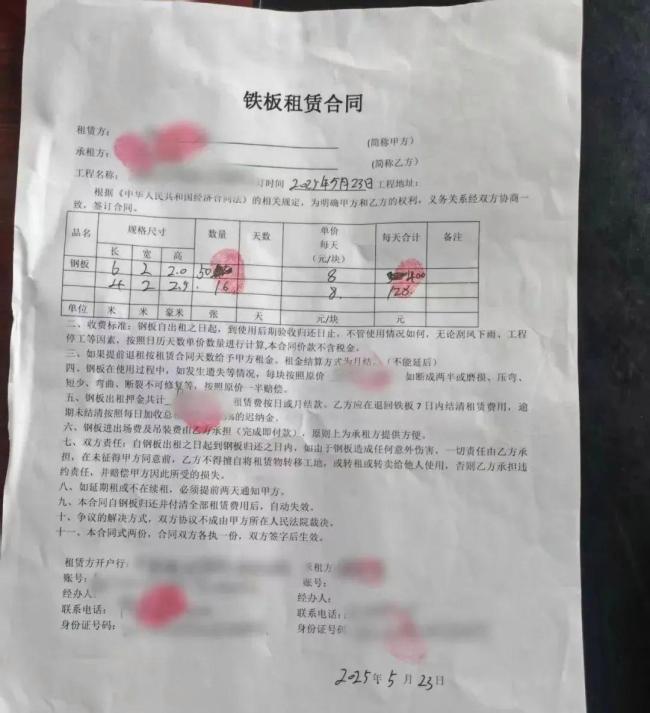 铁板租赁合同
租赁方： (简称甲方)
承租方： (简称乙方)
工程名称： 订时间 2025年5月23日 工程地址：
根据《中华人民共和国经济合同法》的相关规定，为明确甲方和乙方的权利，义务关系经双方协商一
致，签订合同。
品名 规格尺寸 数量 天数 单价 每天 (元/块) 每天合计 备注
长 宽 高
钢板 6 2 2.0 50 8 400
4 2 2.9 16 8. 128.
单位 米 米 毫米 张 天 元/块 元
二、收费标准：钢板自出租之日起，到使用后期验收归还日止，不管使用情况如何，无论刮风下雨、工程
停工等因素，按照日历天数单价数量进行计算,本合同价款不含税金。
三、如果提前退租按租赁合同天数给予甲方租金。租金结算方式为月结。（不能延后）
四、钢板在使用过程中，如发生遗失等情况，每块按照原价 如断成两半或磨损、压弯、
短少、弯曲、断裂不可修复等，按照原价一半赔偿。
五、钢板出租押金共计 租赁费按日或月结款。乙方应在退回铁板 7 日内结清租赁费用，逾
期未结清按照每日加收总 %的迟纳金。
六、钢板进出场费及吊装费由乙方承担（完成即付款），原则上为承租方提供方便。
七、双方责任：自钢板出租之日起到钢板归还之日内，如由于钢板造成任何意外伤害，一切责任由乙方承
担，在未征得甲方同意前，乙方不得擅自将租赁物转移工地，或转租或转卖给他人使用，否则乙方承担违
约责任，并赔偿甲方因此所受的损失。
八、如延期租或不在续租，必须提前两天通知甲方。
九、本合同自钢板归还并付清全部租赁费用后，自动失效。
十、争议的解决方式，双方协议不成由甲方所在人民法院裁决。
十一、本合同式两份，合同双方各执一份，双方签字后生效。
租赁方开户行： 承租方
账号： 账号：
经办人 经办人：
联系电话： 联系电话：
身份证号码： 身份证号码
2025年 5 月 23 日